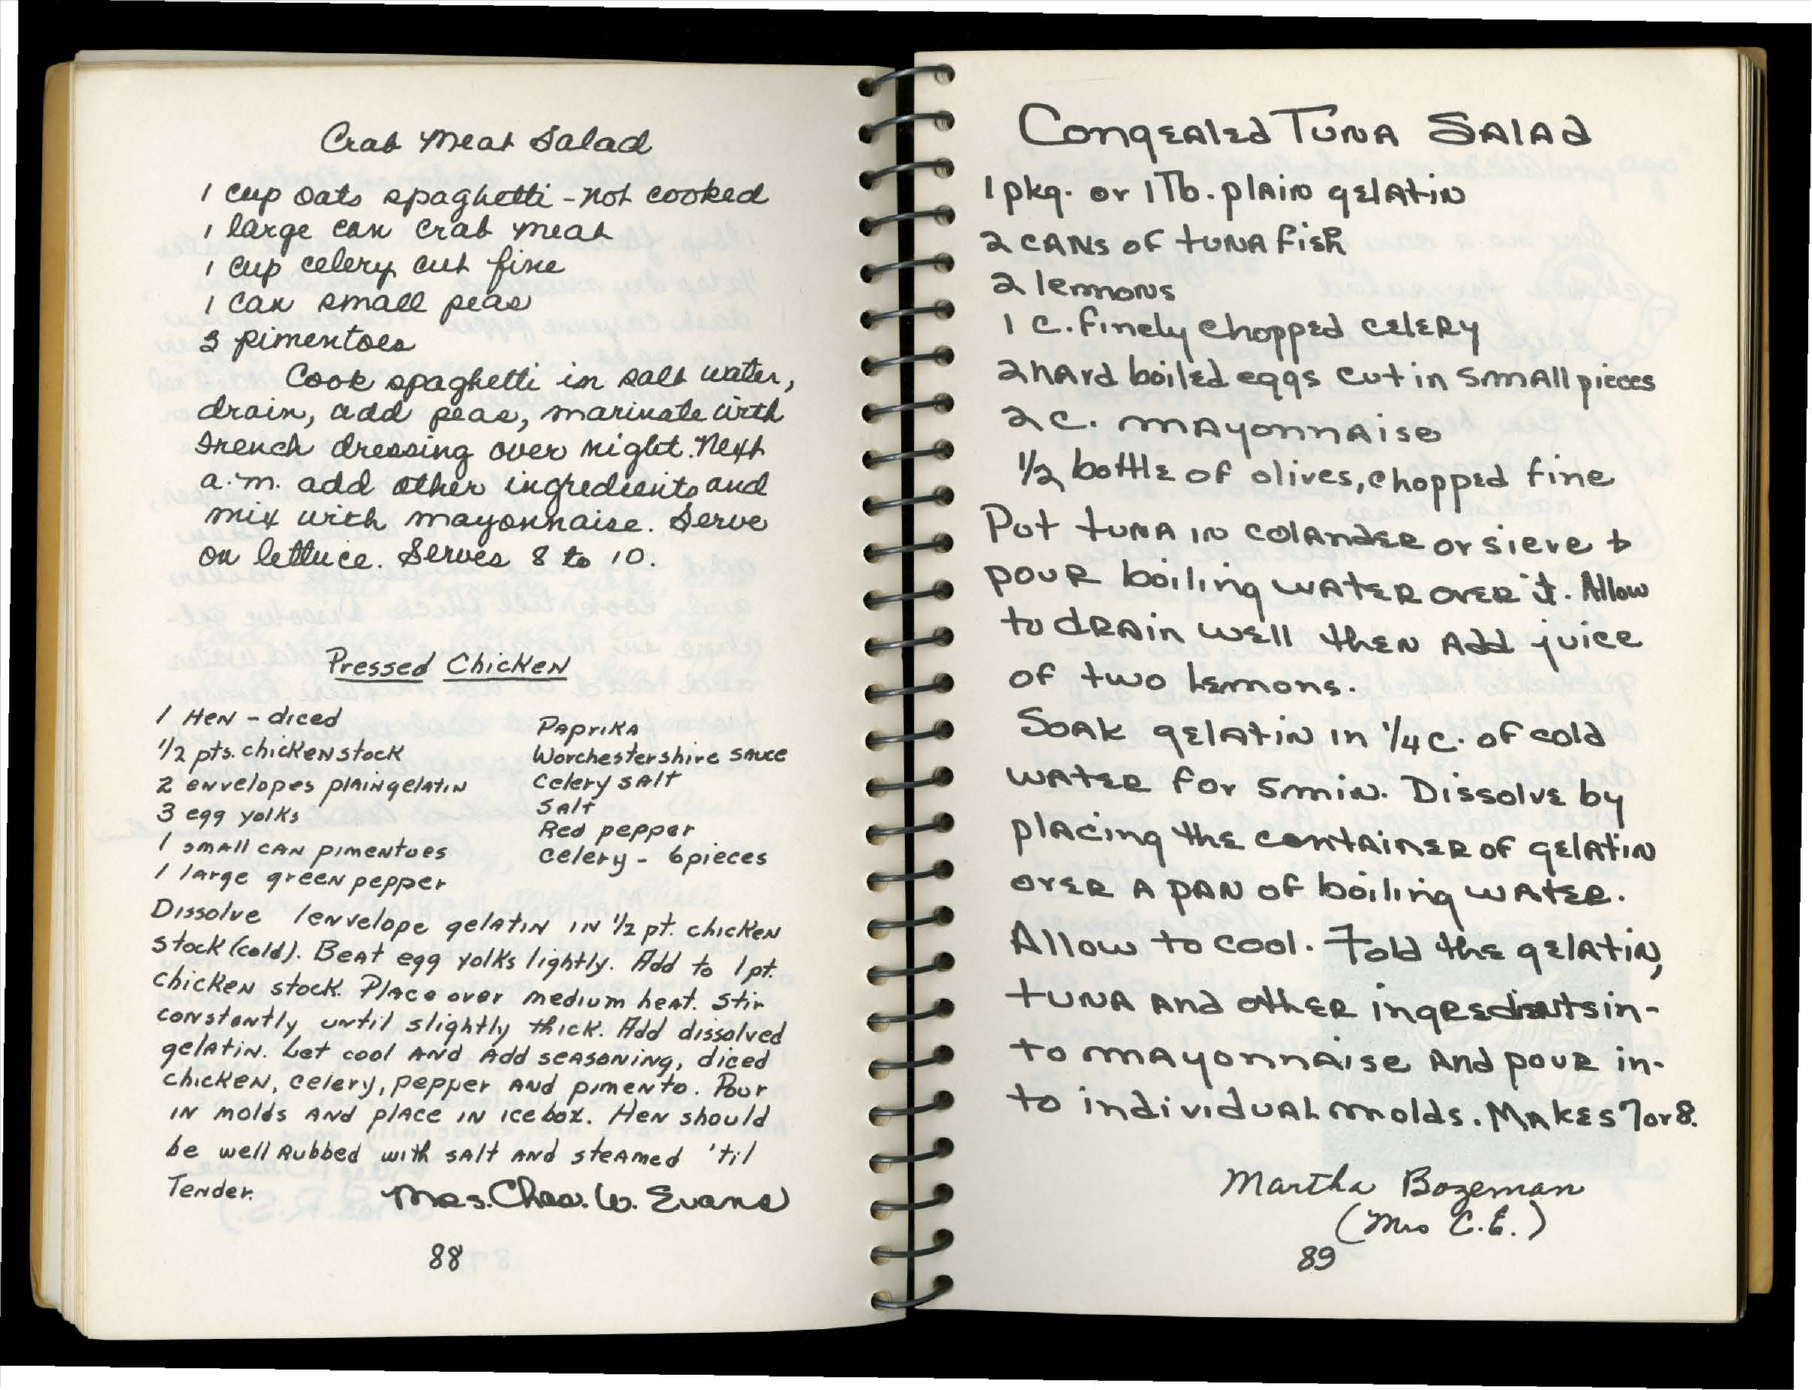 Crab Meat Salad
1 cup oats spaghetti - not cooked
1 large can crab meat
1 cup celery cut fine
1 can small peas
3 pimentoes
Cook spaghetti in salt water,
drain, add peas, marinate with
French dressing over night. Next
a.m. add other ingredients and
mix with mayonnaise. Serve
on lettuce. Serves 8 to 10.
Pressed Chicken
1 Hen - diced
1/2 pts. chicken stock
2 envelopes plain gelatin
3 egg yolks
1 small can pimentoes
1 large green pepper
Paprika
Worchestershire sauce
Celery salt
Salt
Red pepper
Celery - 6 pieces
Dissolve 1 envelope gelatin in 1/2 pt. chicken
stock (cold). Beat egg yolks lightly. Add to 1 pt.
chicken stock. Place over medium heat. Stir
constantly until slightly thick. Add dissolved
gelatin. Let cool and add seasoning, diced
chicken, celery, pepper and pimento. Pour
in molds and place in icebox. Hen should
be well rubbed with salt and steamed 'til
Tender.
Mrs. Chas. W. Evans
88
Congealed Tuna Salad
1 pkg. or 1 Tb. plain gelatin
2 cans of tuna fish
2 lemons
1 c. finely chopped celery
2 hard boiled eggs cut in small pieces
2 c. mayonnaise
1/2 bottle of olives, chopped fine
Put tuna in colander or sieve &
pour boiling water over it. Allow
to drain well then add juice
of two lemons.
Soak gelatin in 1/4 c. of cold
water for 5 min. Dissolve by
placing the container of gelatin
over a pan of boiling water.
Allow to cool. Fold the gelatin,
tuna and other ingredients in-
to mayonnaise and pour in-
to individual molds. Makes 7 or 8.
Martha Bozeman
(Mrs C.E.)
89